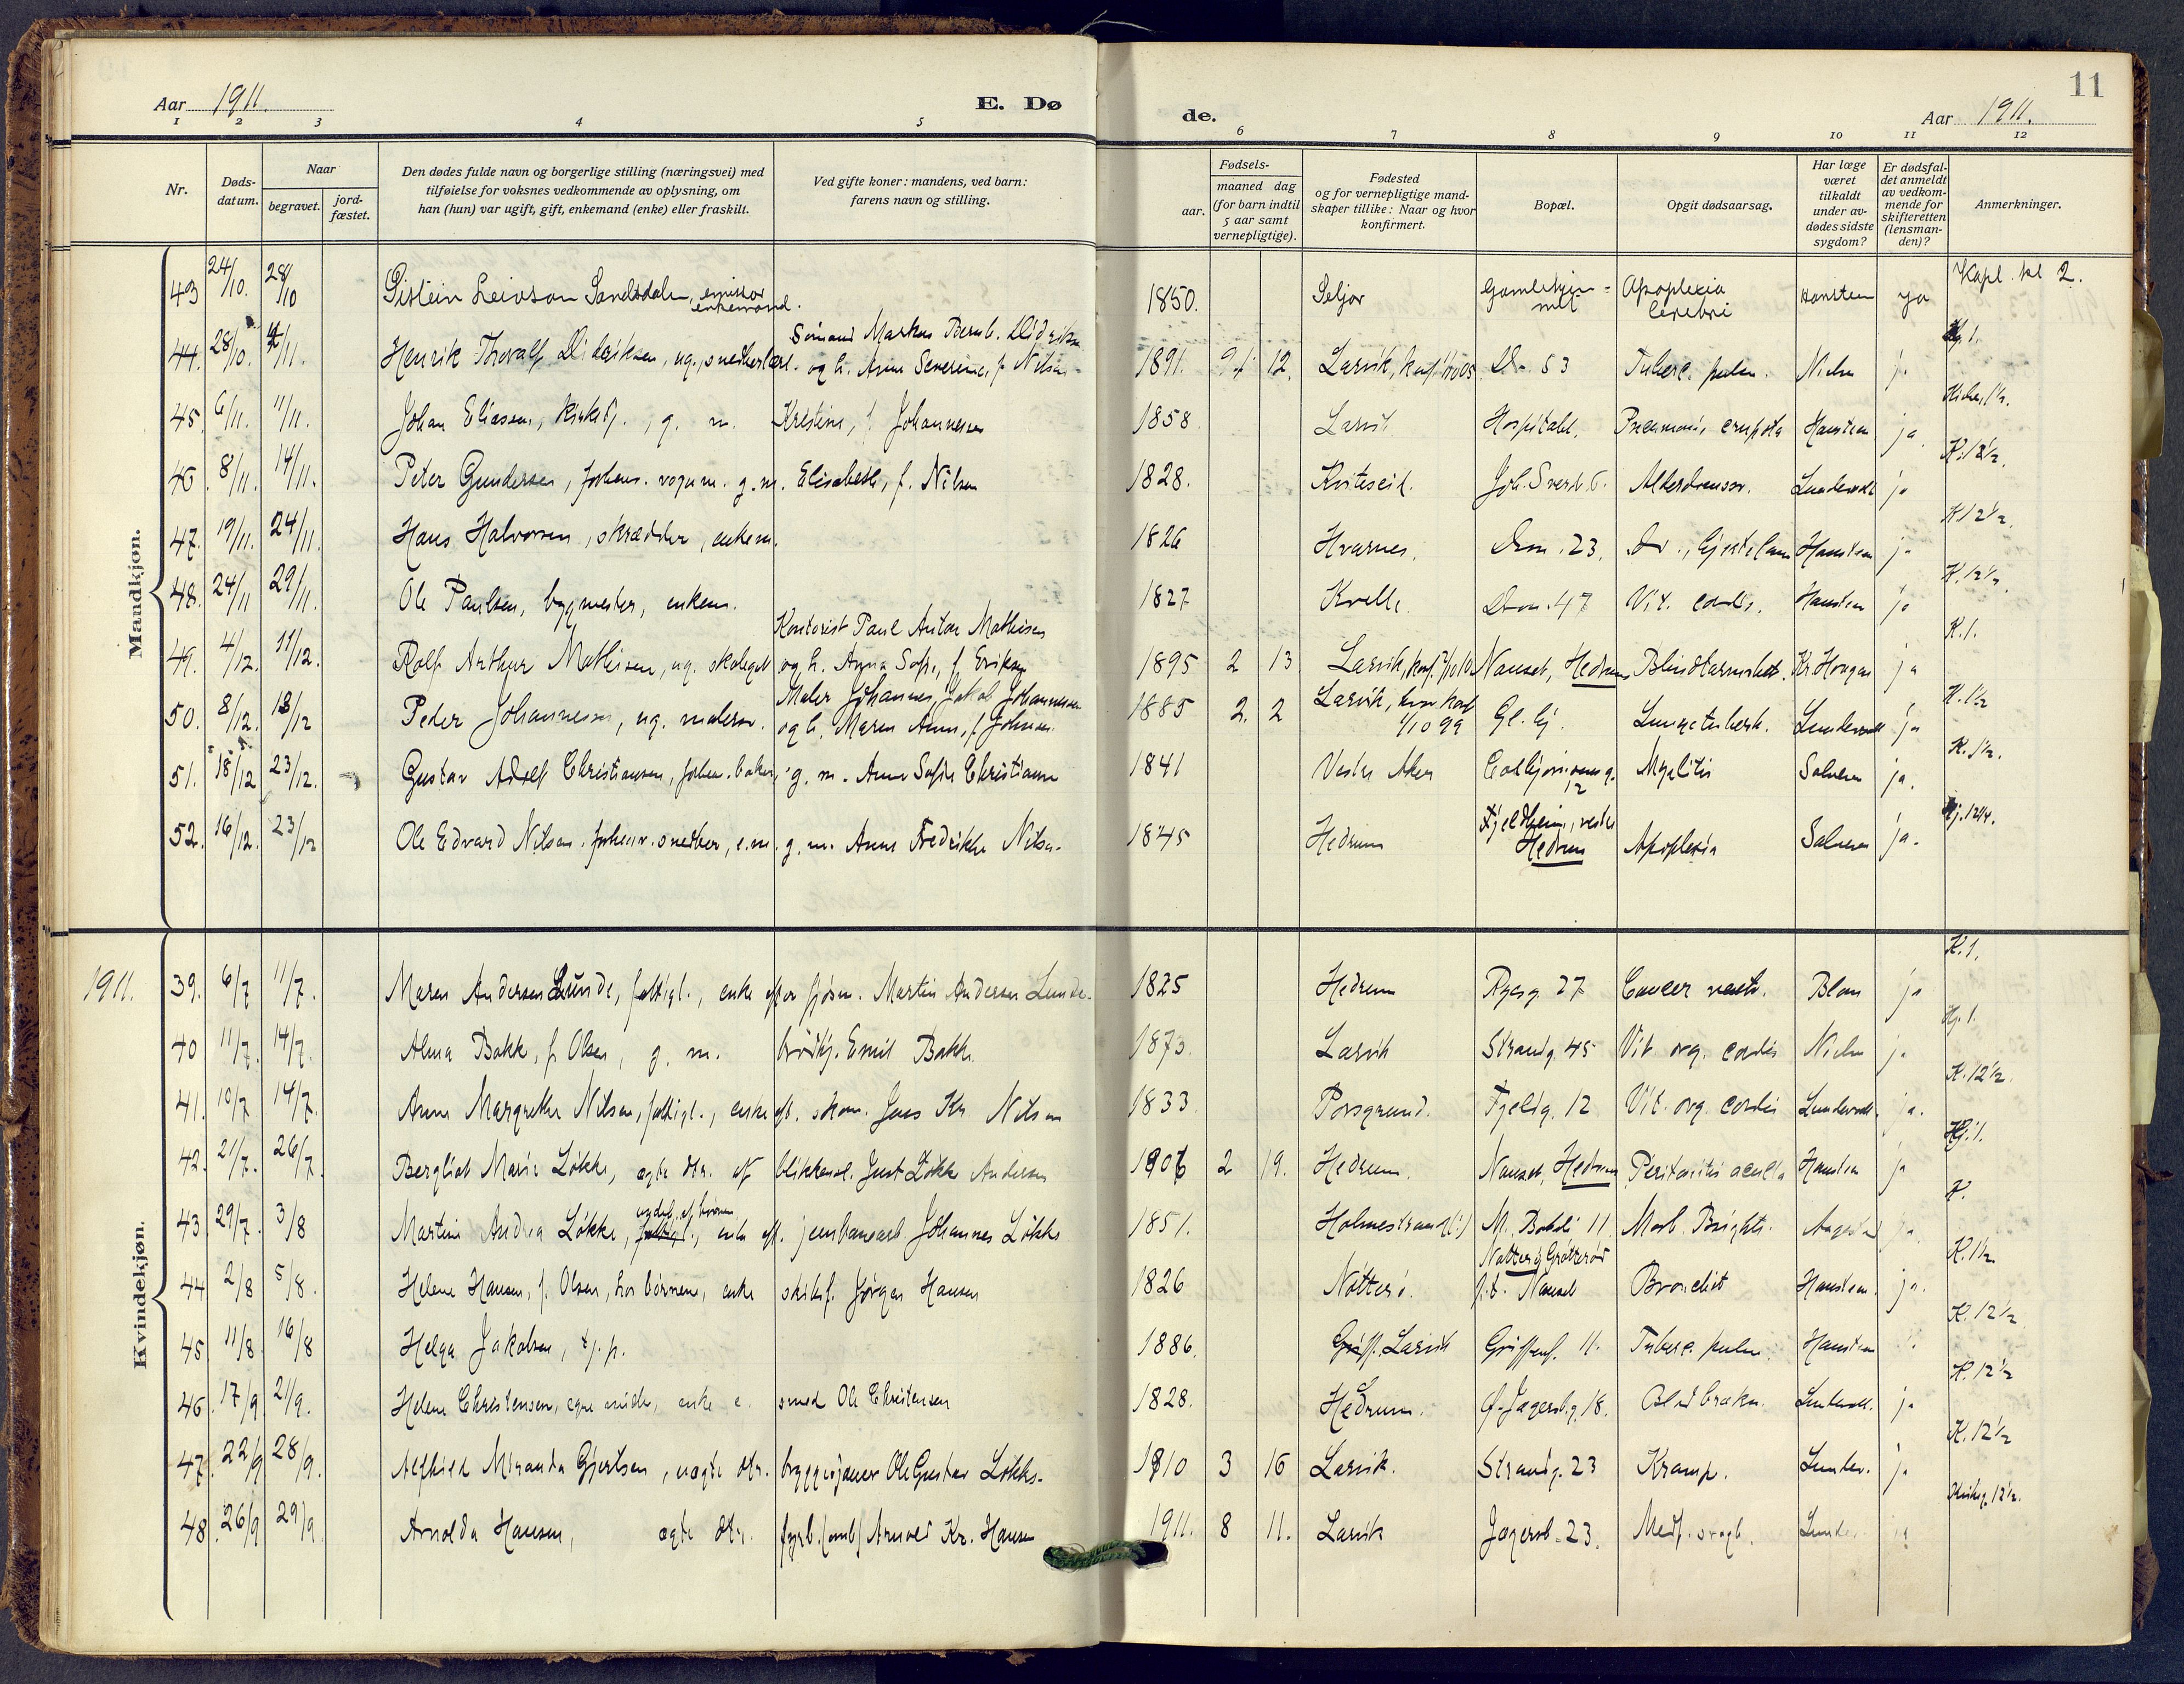 Aar 1911. E. Dø de. Aar 1911. 11
1 2 3 4 5 6 7 8 9 10 11 12
Nr.
Døds-datum.
Naar
begravet.
jord-fæstet.
Den dødes fulde navn og borgerlige stilling (næringsvei) med
tilføielse for voksnes vedkommende av oplysning, om
han (hun) var ugift, gift, enkemand (enke) eller fraskilt.
Ved gifte koner: mandens, ved barn:
farens navn og stilling.
Fødsels-
aar.
maaned dag
(for barn indtil
5 aar samt
vernepligtige).
Fødested
og for vernepligtige mand-
skaper tillike: Naar og hvor
konfirmert.
Bopæl.
Opgit dødsaarsag.
Har læge
været
tilkaldt
under av-
dødes sidste
sygdom?
Er dødsfal-
det anmeldt
av vedkom-
mende for
skifteretten
(lensman-
den)?
Anmerkninger.
Mandkjøn.
43 24/10. 28/10 Leivson Sandsdalen, emissør enkemand. 1850. Seljor Apoplexia Cerebri Hansteen ja Kapl. kl 2.
44. 28/10. 4/11. Henrik Thorvalf Didriksen, ug., snedkerlærl. Sømand Markus Bernh. Didriksen og h. Anne Severine, f. Nilsen 1891. 12. Larvik, Do 53 Tuberc. pulm. Nielsen j. 1.
45. 6/11. 11/11. Johan Eliasen, g. m. Kristine, f. Johannesen 1858 Larvik Hospitalet. Hansteen ja
46. 8/11. 14/11. Peter Gundersen, forhenv. vognm. g. m. Elisabeth, f. Nilsen 1828. Kviteseid. Joh. Sverd. G. Lundevall ja K. 12½.
47. 19/11. 24/11. Hans Halvorsen, skrædder, enkem. 1826 Hvarnes. Dron. 23. Hansteen ja K. 12½.
48. 24/11 29/11. Ole Paulsen, bygmester, enkem. 1827 Kvelle. Dron. 47 Vit. cordis. Hansteen ja K. 12½.
49. 4/12. 11/12. Rolf Arthur Mathisen, ug. skoleget Kontorist Paul Anton Mathisen og h. Anna Sofie, f. Eriksen 1895 2 13 Larvik, konf. Nanset, Hedrum Kr. Hougen ja K. 1.
50. 8/12. 13/12 Peder Johannesen, ug. malersv. Maler Johannes Jakob Johannesen og h. Maren Anne, f. Johnsen 1885 2. 2 Larvik, konf 1/10 99 Gl. Lungetuberk. Lundevall ja K. 1½
51. 18/12 23/12. Gustav Adolf Christiansen, forhen. baker, g. m. Anne Sofie Christiansen 1841 Vestre Aker 12 Myelitis Salvesen ja. K. 1½.
52. 16/12. 23/12 Ole Edvard Nilsen. forhenv. snedker, e.m. g. m. Anne Fredrikke Nilsen. 1845 Hedrum Fjeldheim, vestre Hedrum Apoplexia Salvesen ja. Kj. 12¼.
Kvindekjøn.
1911. 39. 6/7 11/7. Maren Andersen Lunde, fattigl., enke efter Martin Andersen Lunde. 1825 Hedrum 27 Cancer ventr. Blom ja K. 1.
40 11/7. 14/7. Alma Bakk, f. Olsen, g. m. Emil Bakk. 1873. Larvik Strandg. 45 Vit. org. cordis Nielsen ja 1.
41. 10/7 14/7. Anne Margrethe Nilsen, fattigl., enke eft. skom. Jens Kr. Nilsen 1833 Porsgrund. Fjeldg. 12 Vit. org. cordis Lundevall. ja. K. 12½.
42. 21/7. 26/7. Bergliot Marie Løkke, ægte dtr. af blikkensl. Just Løkke Andersen 1906 2 19. Hedrum. Nanset, Hedrum Peritonitis acuta Hansteen ja Kj. 1.
43 29/7. 3/8 Martine Andrea Løkke, fattigl., underh. af børnene enke eft. jernbanearb. Johannes Løkke 1851. Holmestrand (!) 11 Morb. Brightii. K.
44 2/8 5/8. Helene Hansen, f. Olsen, hos børnene, enke skibsf. Jørgen Hansen 1826 Nøtterø. Nøtterø Grøtterød p.t. Nanset Bronchit Hansteen. ja. K. 1½
45 11/8 16/8 Helga Jakobsen, tj. p. 1886. Griff. Larvik Griffenf. 11. Tuberc. pulm. Hansteen K. 12½
46. 17/9 21/9. Helene Christensen, egne midler, enke e. smed Ole Christensen 1828. Hedrum. Ø. Jægersbg. 18. Lundevall. ja K. 12½
47. 22/9 28/9. Alfhild Miranda Gjertsen, uægte dtr. bryggesjauer Ole Gustav Løkke. 1910 3 16 Larvik. Strandg. 23 Kramp. Lundev. ja K. 12½
48. 26/9 29/9. Arnolda Hansen, ægte dtr. fyrb. (omb) Arnold Kr. Hansen 1911. 8 11. Larvik Jægersb. 23. Medf. svagh. Lunde. ja 12½.